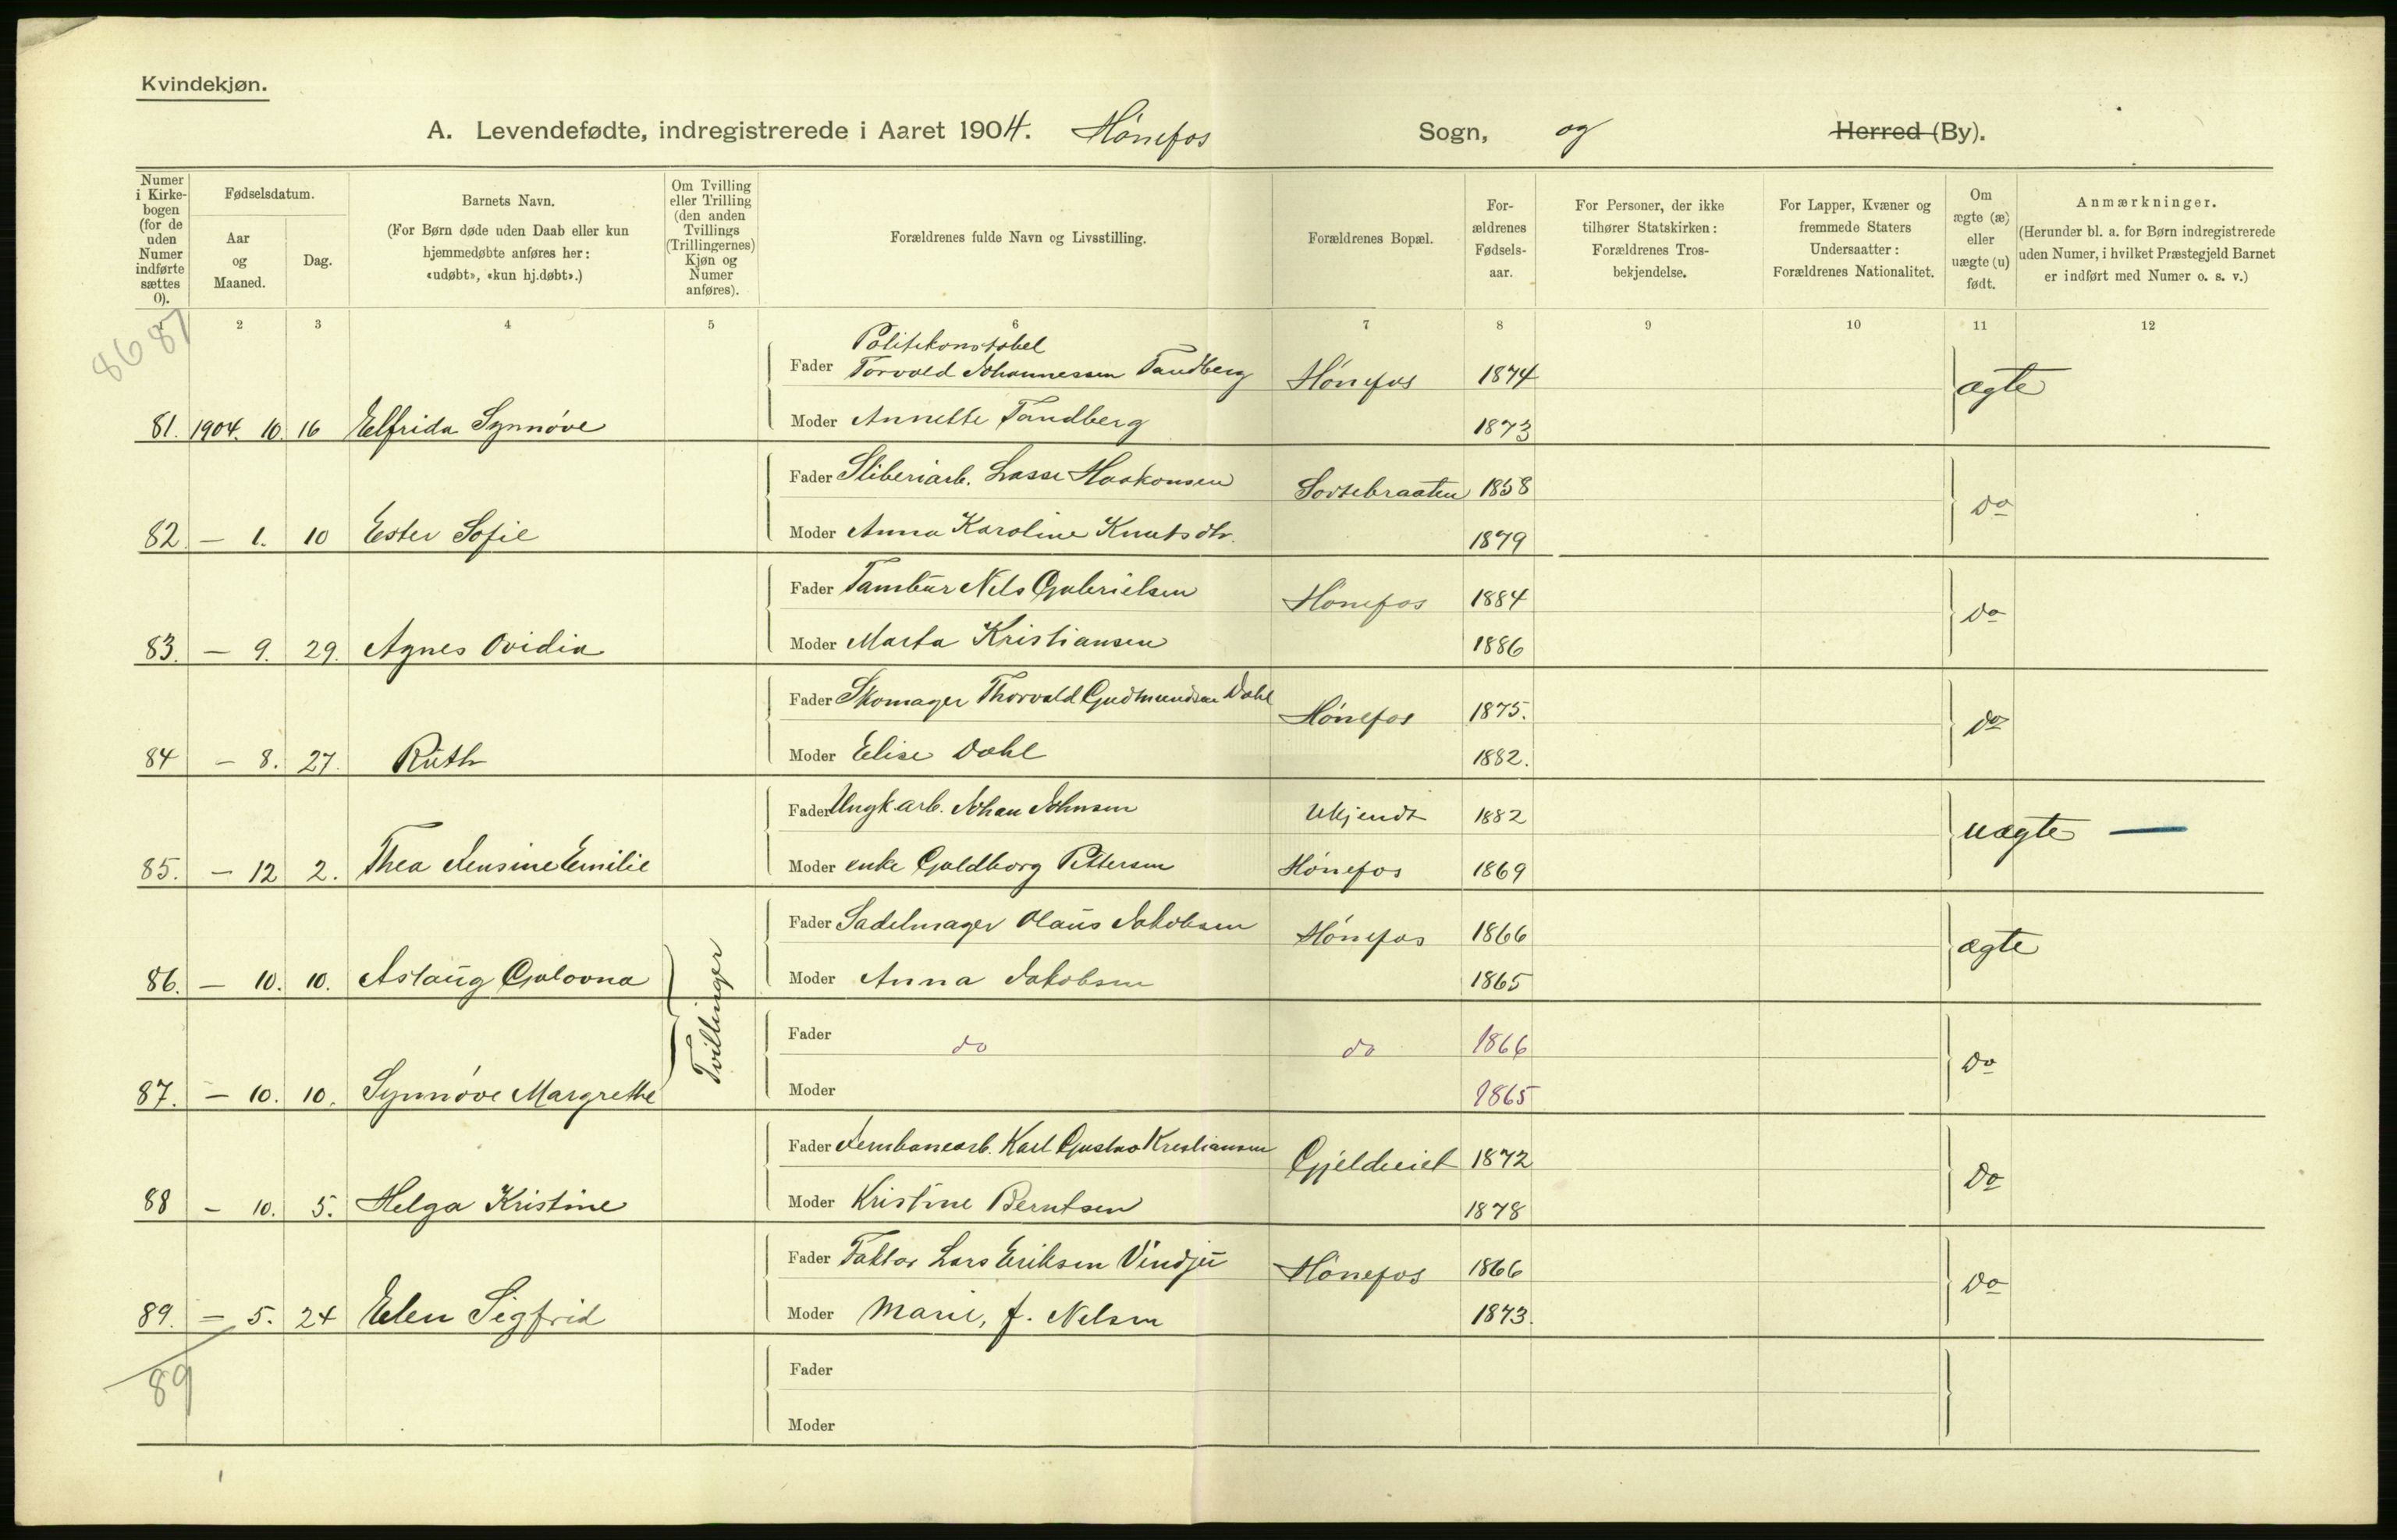 Kvindekjøn.
A. Levendefødte, indregistrerede i Aaret 1904. Hönefos Sogn, og Herred (By).
Numer i Kirkebogen (for de uden Numer indførte sættes 0).
Fødselsdatum.
Aar og Maaned.
Dag.
Barnets Navn.
(For Børn døde uden Daab eller kun hjemmedøbte anføres her: «udøbt», «kun hj.døbt».)
Om Tvilling eller Trilling (den anden Tvillings (Trillingernes) Kjøn og Numer anføres).
Forældrenes fulde Navn og Livsstilling.
Forældrenes Bopæl.
Forældrenes Fødselsaar.
For Personer, der ikke tilhører Statskirken: Forældrenes Trosbekjendelse.
For Lapper, Kvæner og fremmede Staters Undersaatter: Forældrenes Nationalitet.
Om ægte (æ) eller uægte (u) født.
Anmærkninger.
(Herunder bl. a. for Børn indregistrerede uden Numer, i hvilket Præstegjeld Barnet er indført med Numer o. s. v.)
1 2 3 4 5 6 7 8 9 10 11 12
86 87
Politikonstabel
Fader Torvald Johannessen Tandberg Hönefos 1874 ægte
81. 1904. 10. 16 Elfrida Synnöve Moder Annette Tandberg 1873
Fader Sliberiarb. Lasse Haakonsen Sortebraaten 1858 do
82. — 1. 10 Ester Sofie Moder Anna Karoline Knutsdtr. 1879
Fader Tambur Nils Gabrielsen Hönefos 1884 do
83. — 9. 29. Agnes Ovidia Moder Marta Kristiansen 1886
Fader Skomager Thorvald Gudmundsen Dahl Hönefos 1875. do
84 — 8. 27. Ruth Moder Elise Dahl 1882.
Fader Ungk. arb. Johan Johnsen Ukjendt 1882 uægte —
85. — 12 2. Thea Jensine Emilie Moder enke Guldborg Pettersen Hönefos 1869
Fader Sadelmager Olaus Jakobsen Hönefos 1866 ægte
86. — 10. 10. Aslaug Galovna Tvillinger Moder Anna Jakobsen 1865
Fader do do 1866 do
87. — 10. 10. Synnöve Margrethe Moder 1865
Fader Jernbanearb. Karl Gustav Kristiansen Gjeldreiet 1872 do
88 — 10. 5. Helga Kristine Moder Kristine Berntsen 1878
Fader Faktor Lars Eriksen Vindju Hönefos 1866 do
89. — 5. 24 Elen Sigfrid Moder Marie, f. Nelsen 1873.
89
Fader
Moder